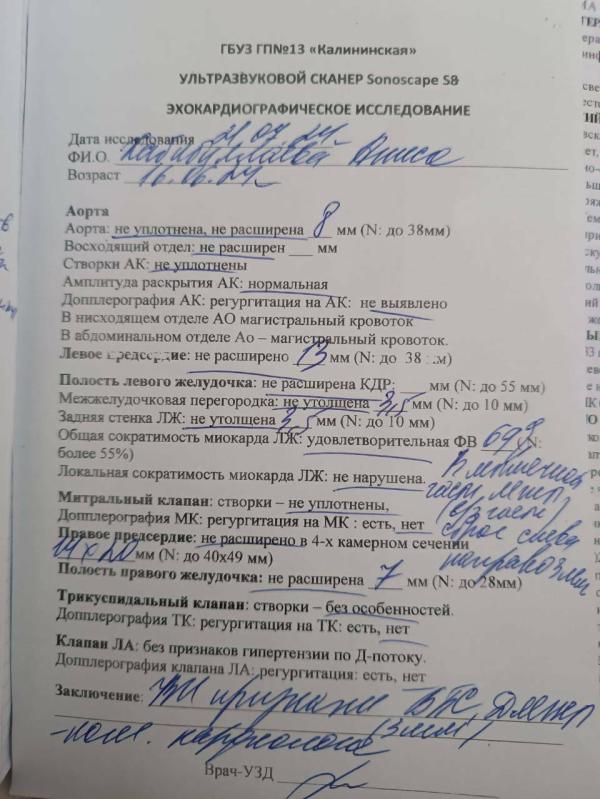 ГБУЗ ГП№13 «Калининская»
УЛЬТРАЗВУКОВОЙ СКАНЕР Sonoscape S8
ЭХОКАРДИОГРАФИЧЕСКОЕ ИССЛЕДОВАНИЕ
Дата исследования 24.07.24г.
ФИ.О.
Возраст 16.06.24г.
Аорта
Аорта: не уплотнена, не расширена 8 мм (N: до 38мм)
Восходящий отдел: не расширен ___ мм
Створки АК: не уплотнены
Амплитуда раскрытия АК: нормальная
Допплерография АК: регургитация на АК: не выявлено
В нисходящем отделе АО магистральный кровоток
В абдоминальном отделе Ао – магистральный кровоток.
Левое предсердие: не расширено 13 мм (N: до 38 мм)
Полость левого желудочка: не расширена КДР: ___ мм (N: до 55 мм)
Межжелудочковая перегородка: не утолщена 3,5 мм (N: до 10 мм)
Задняя стенка ЛЖ: не утолщена 3,5 мм (N: до 10 мм)
Общая сократимость миокарда ЛЖ: удовлетворительная ФВ 69 % (N:
более 55%)
Локальная сократимость миокарда ЛЖ: не нарушена.
В мышечной
части
сброс слева
направо 3мм
Митральный клапан: створки – не уплотнены,
Допплерография МК: регургитация на МК : есть, нет
Правое предсердие: не расширено в 4-х камерном сечении
14х20 мм (N: до 40х49 мм)
Полость правого желудочка: не расширена 7 мм (N: до 28мм)
Трикуспидальный клапан: створки – без особенностей.
Допплерография ТК: регургитация на ТК: есть, нет
Клапан ЛА: без признаков гипертензии по Д-потоку.
Допплерография клапана ЛА: регургитация: есть, нет
Заключение: УЗИ признаки ВПС, ДМЖП
(3мм)
- конс. кардиолога
Врач-УЗД